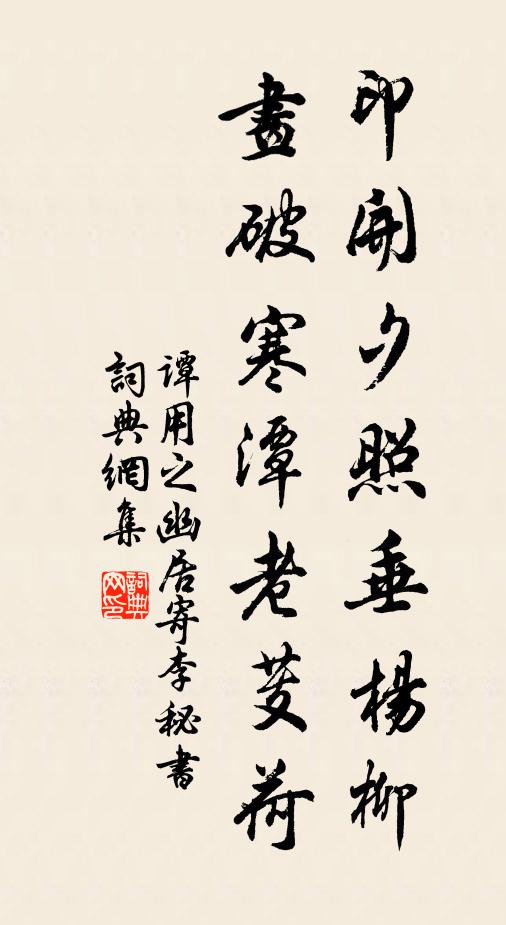 印開夕照垂楊柳
畫破寒潭老芰荷
譚用之幽居寄李秘書
詞典網集
詞典網印